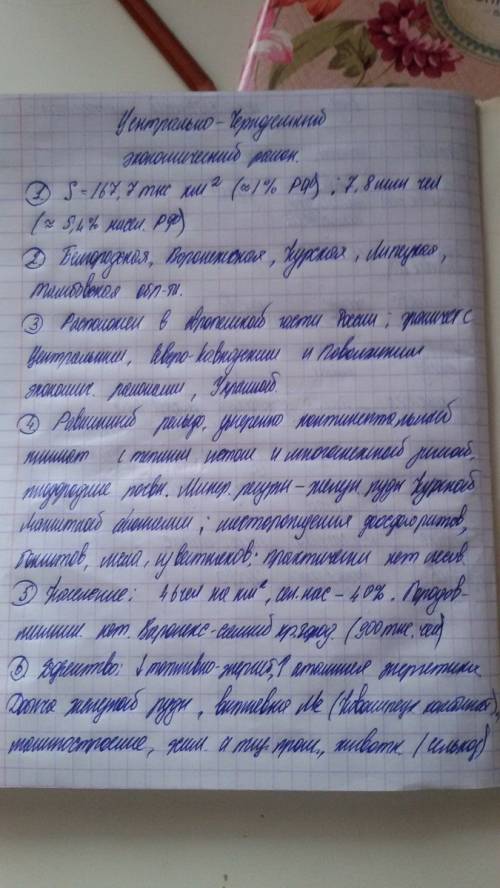 Центрально-Черноземный
экономический район.
① S = 167,7 тыс км² (≈1% РФ); 7,8 млн чел
(≈ 5,4% насел. РФ)
② Белгородская, Воронежская, Курская, Липецкая,
Тамбовская обл-ти.
③ Расположен в европейской части России; граничит с
Центральным, Северо-Кавказским и Поволжским
экономич. районами, Украиной.
④ Равнинный рельеф, умеренно континентальный
климат с теплым летом и многоснежной зимой,
плодородные почвы. Минер. ресурсы - железн. руды Курской
магнитной аномалии; месторождения фосфоритов,
бокситов, мела, известняков; практически нет лесов.
⑤ Население: 46 чел на км², сел. нас - 40%. Городов-
миллион. нет. Воронеж - самый кр. город. (900 тыс. чел)
⑥ Хозяйство: ↓ топливно-энергет, ↑ атомная энергетика
Добыча железной руды, выплавка Ме (Новолипецк комбинат),
машиностроение, хим. и пищ. пром., животн. (сельхоз)